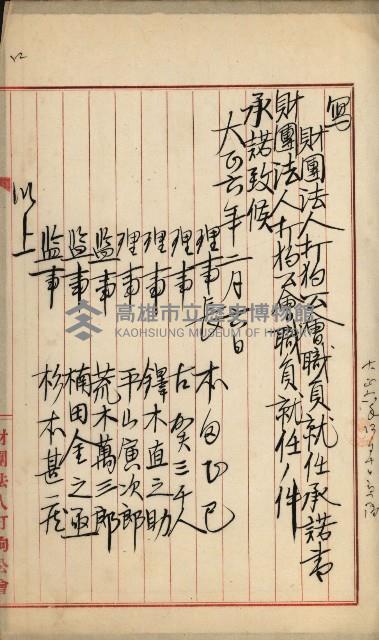 写
財團法人打狗公會職員就任承諾書
財團法人打狗公會職員就任ノ件
承諾致候
大正六年二月六日
理事長 木白正巳
理事 古賀三千人
理事 鐸木直之助
理事 平山寅次郎
監事 荒木萬三郎
監事 楠田金之丞
監事 杉本甚一
以上
財團法人打狗公會
高雄市立歷史博物館
KAOHSIUNG MUSEUM OF HISTORY